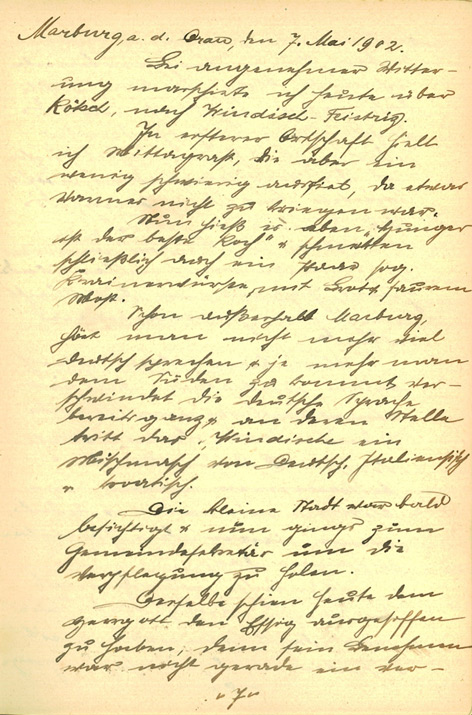 Marburg, a. d. Drau, den 7. Mai 1902.
Bei angenehmer Witter-
ung marschierte ich heute über
Kötsch, nach Windisch-Feistriz.
In ersterer Ortschaft hielt
ich Mittagrast, die aber ein
wenig schwierig ausfiel, da etwas
warmes nicht zu kriegen war.
Nun hieß es eben „Hunger
ist der beste Koch" & schmeckten
schließlich auch ein Paar sog.
Krainerwürste, mit Brot & saurem
Most.
Schon außerhalb Marburg,
hört man nicht mehr viel
deutsch sprechen & je mehr man
dem Süden zu kommt ver-
schwindet die deutsche Sprache
bereits ganz & an deren Stelle
tritt das „Windische ein
Mischmasch von Deutsch, Italienisch
& kroatisch.
Die kleine Stadt war bald
besichtigt & nun gings zum
Gemeindesekretär um die
Verpflegung zu holen.
Derselbe schien heute dem
Herrgott den Essig ausgesoffen
zu haben, denn sein Benehmen
war nicht gerade ein ver-
„7"